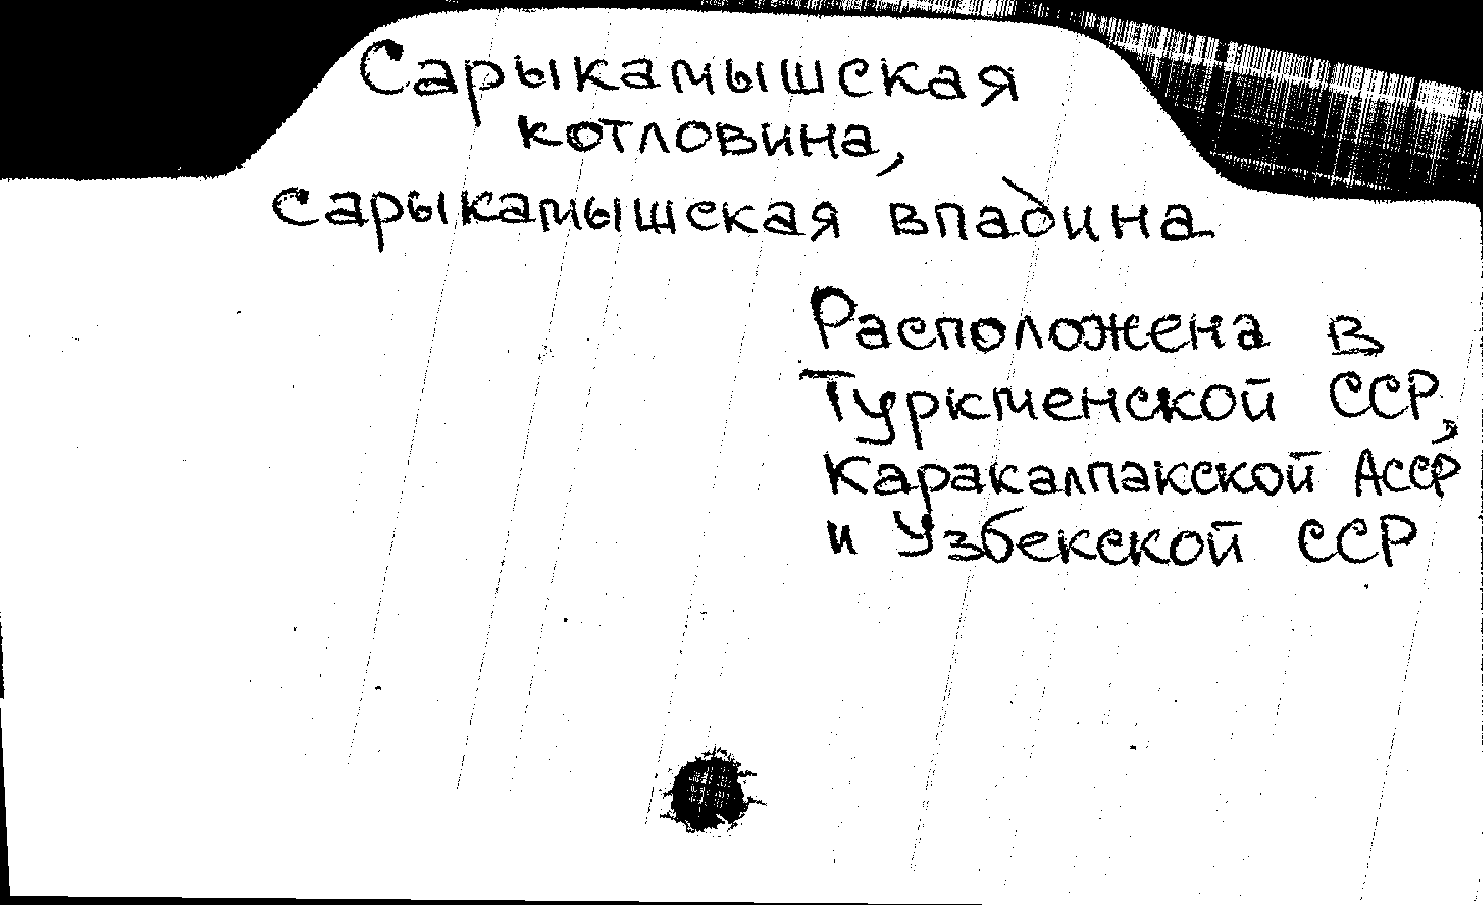 Сарыкамышская
котловина,
сарыкамышская впадина
Расположена в
Туркменской ССР,
Каракалпакской АССР
и Узбекской ССР